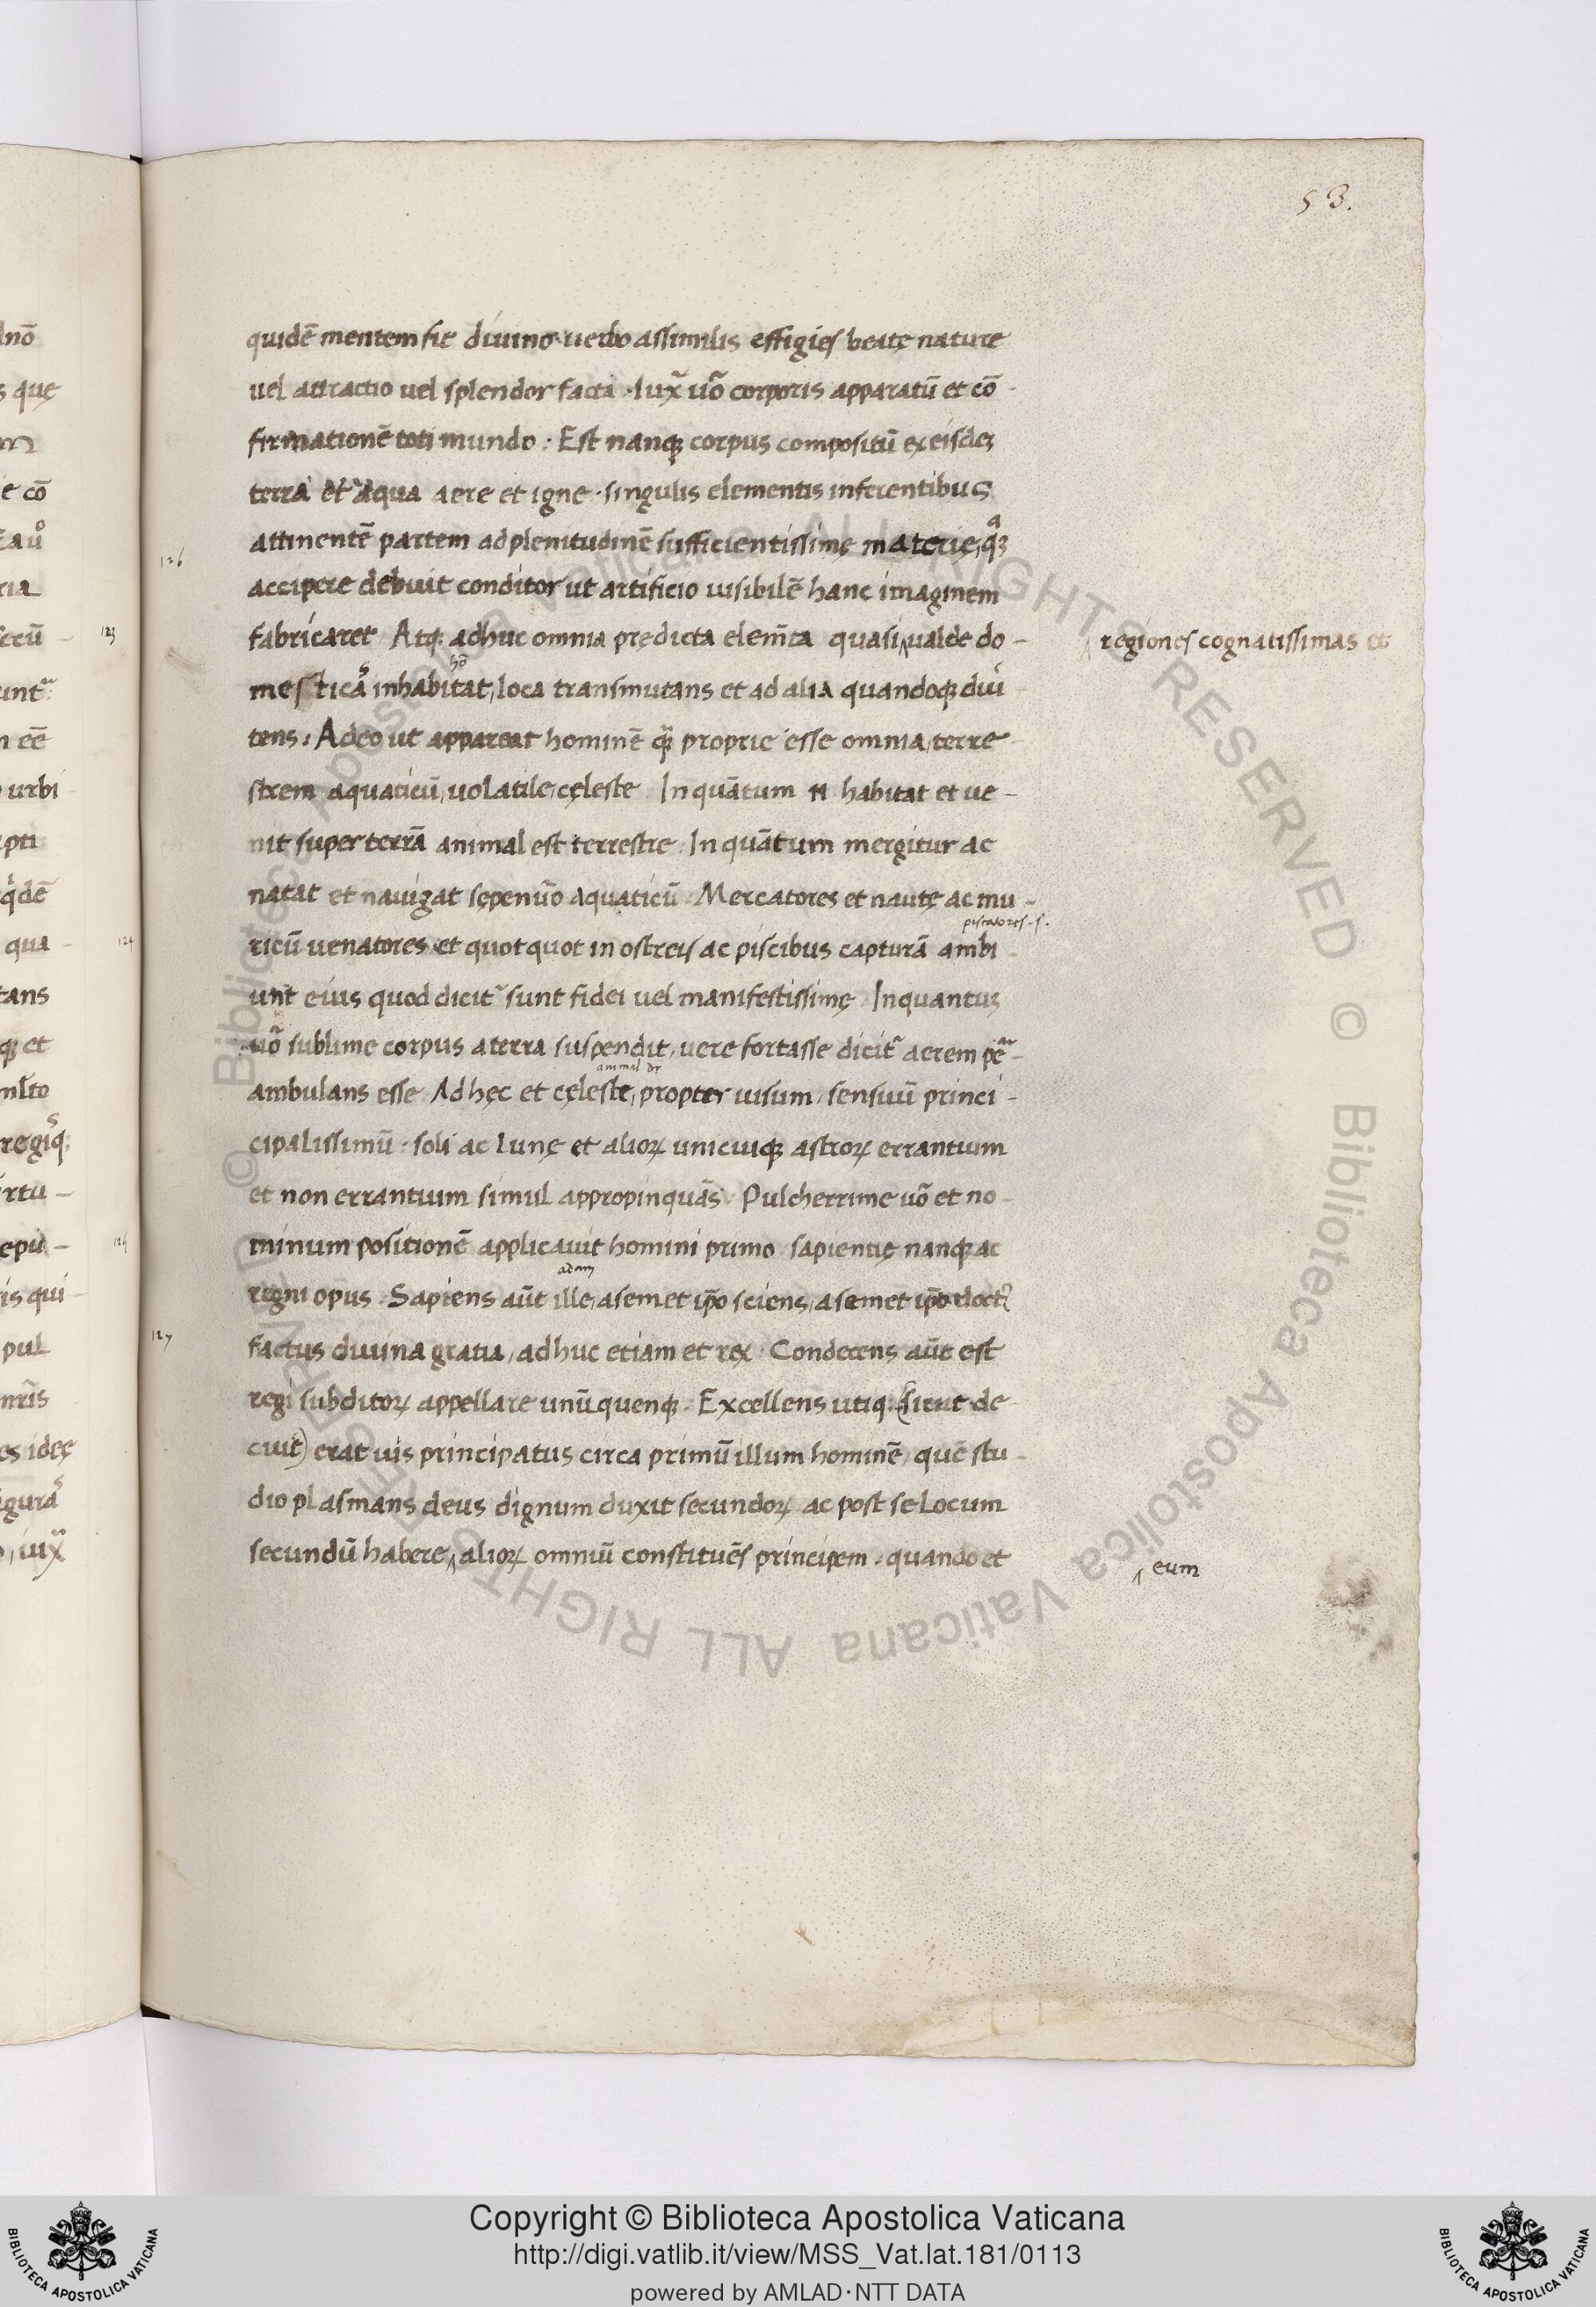 53.
quidē mentem fit diuino uerbo assimilis effigies beatę nature
uel attractio uel splendor facta · Iux̃ uõ corporis apparatū et cō-
firmationē toti mundo : Est nanqꝫ corpus compositū ex eisdeꝫ
terra et aqua aere et igne · singulis elementis inferentibus
attinentē partem ad plenitudinē sufficientissimę materię, q̃ꝫ
126
accipere debuit conditor ut artificio uisibilē hanc imaginem
fabricaret Atqꝫ adhuc omnia prędicta elem̃ta quasi ‸ ualde do-
‸ regiones cognatissimas et
hō
mesticas inhabitat, loca transmutans et ad alia quandoqꝫ diũ-
tens : Adeo ut appareat hominē q̃ proprie esse omnia, terre-
strem aquaticū, uolatile, cęleste In quātum n̄ habitat et ue-
nit super terrā animal est terrestre . In quātum mergitur ac
natat et nauigat sępenũo aquaticū . Mercatores et nautę ac mu-
ricū uenatores et quotquot in ostreis ac piscibus capturā ambi
piscatores . s.
unt eius quod dicit᷑ sunt fidei uel manifestissimę . In quantuꝫ
uõ sublime corpus a terra suspendit, uere fortasse dicit᷑ aerem p̱
ambulans esse Ad hęc et cęleste, propter uisum, sensuū princi-
animal dr
cipalissimū · soli ac lunę et alioꝝ unicuiqꝫ astroꝝ errantium
et non errantium simul appropinquās . Pulcherrime uõ et no-
minum positionē applicauit homini primo sapientię nanqꝫ ac
adam
regni opus . Sapiens aūt ille, a semet ip̄o sciens, a semet ip̄o doct᷒
127
factus diuina gratia, adhuc etiam et rex . Condecens aūt est
regi subditoꝝ appellare unūquenqꝫ . Excellens utiqꝫ (sicut de
cuit) erat uis principatus circa primū illum hominē, quē stu-
dio plasmans deus dignum duxit secundoꝝ ac post se locum
secundū habere, ‸ alioꝝ omniū constituēs principem . quando et
‸ eum
Copyright © Biblioteca Apostolica Vaticana
http://digi.vatlib.it/view/MSS_Vat.lat.181/0113
powered by AMLAD·NTT DATA